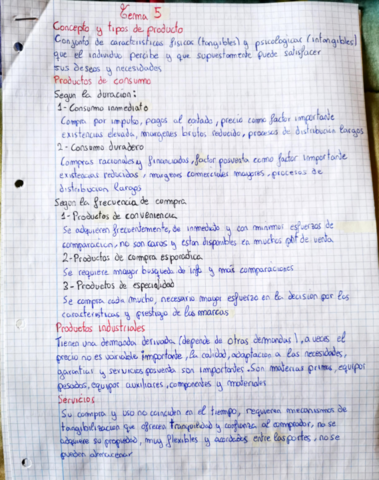 Tema 5
Concepto y tipos de producto
Conjunto de caracteristicas fisicas (tangibles) y psicologicas (intangibles)
que el individuo percibe y que supuestamente puede satisfacer
sus deseos y necesidades
Productos de consumo
Segun la duracion:
1- Consumo inmediato
Compra por impulso, pagos al contado, precio como factor importante
existencias elevada, margenes brutos reducido, procesos de distribucion largos
2- Consumo duradero
Compras racionales y financiadas, factor posventa como factor importante
existencias reducidas, margenes comerciales mayores, procesos de
distribucion largos
Segun la frecuencia de compra
1- Productos de conveniencia
Se adquieren frecuentemente, de inmediato y con minimos esfuerzos de
comparacion, no son caros y estan disponibles en muchos de venta
2- Productos de compra esporadica
Se requiere mayor busqueda de info y mas comparaciones
3- Productos de especialidad
Se compra cada mucho, necesario mayor esfuerzo en la decision por las
caracteristicas y prestigio de las marcas
Productos industriales
Tienen una demanda derivada (depende de otras demandas), a veces el
precio no es variable importante, la calidad, adaptacion a las necesidades,
garantias y servicios posventa son importantes. Son materias primas, equipos
pesados, equipos auxiliares, componentes y materiales
Servicios
Su compra y uso no coinciden en el tiempo, requieren mecanismos de
tangibilizacion que ofrecen tranquilidad y confianza al comprador, no se
adquiere su propiedad, muy flexibles y acordados entre las partes, no se
pueden almacenar